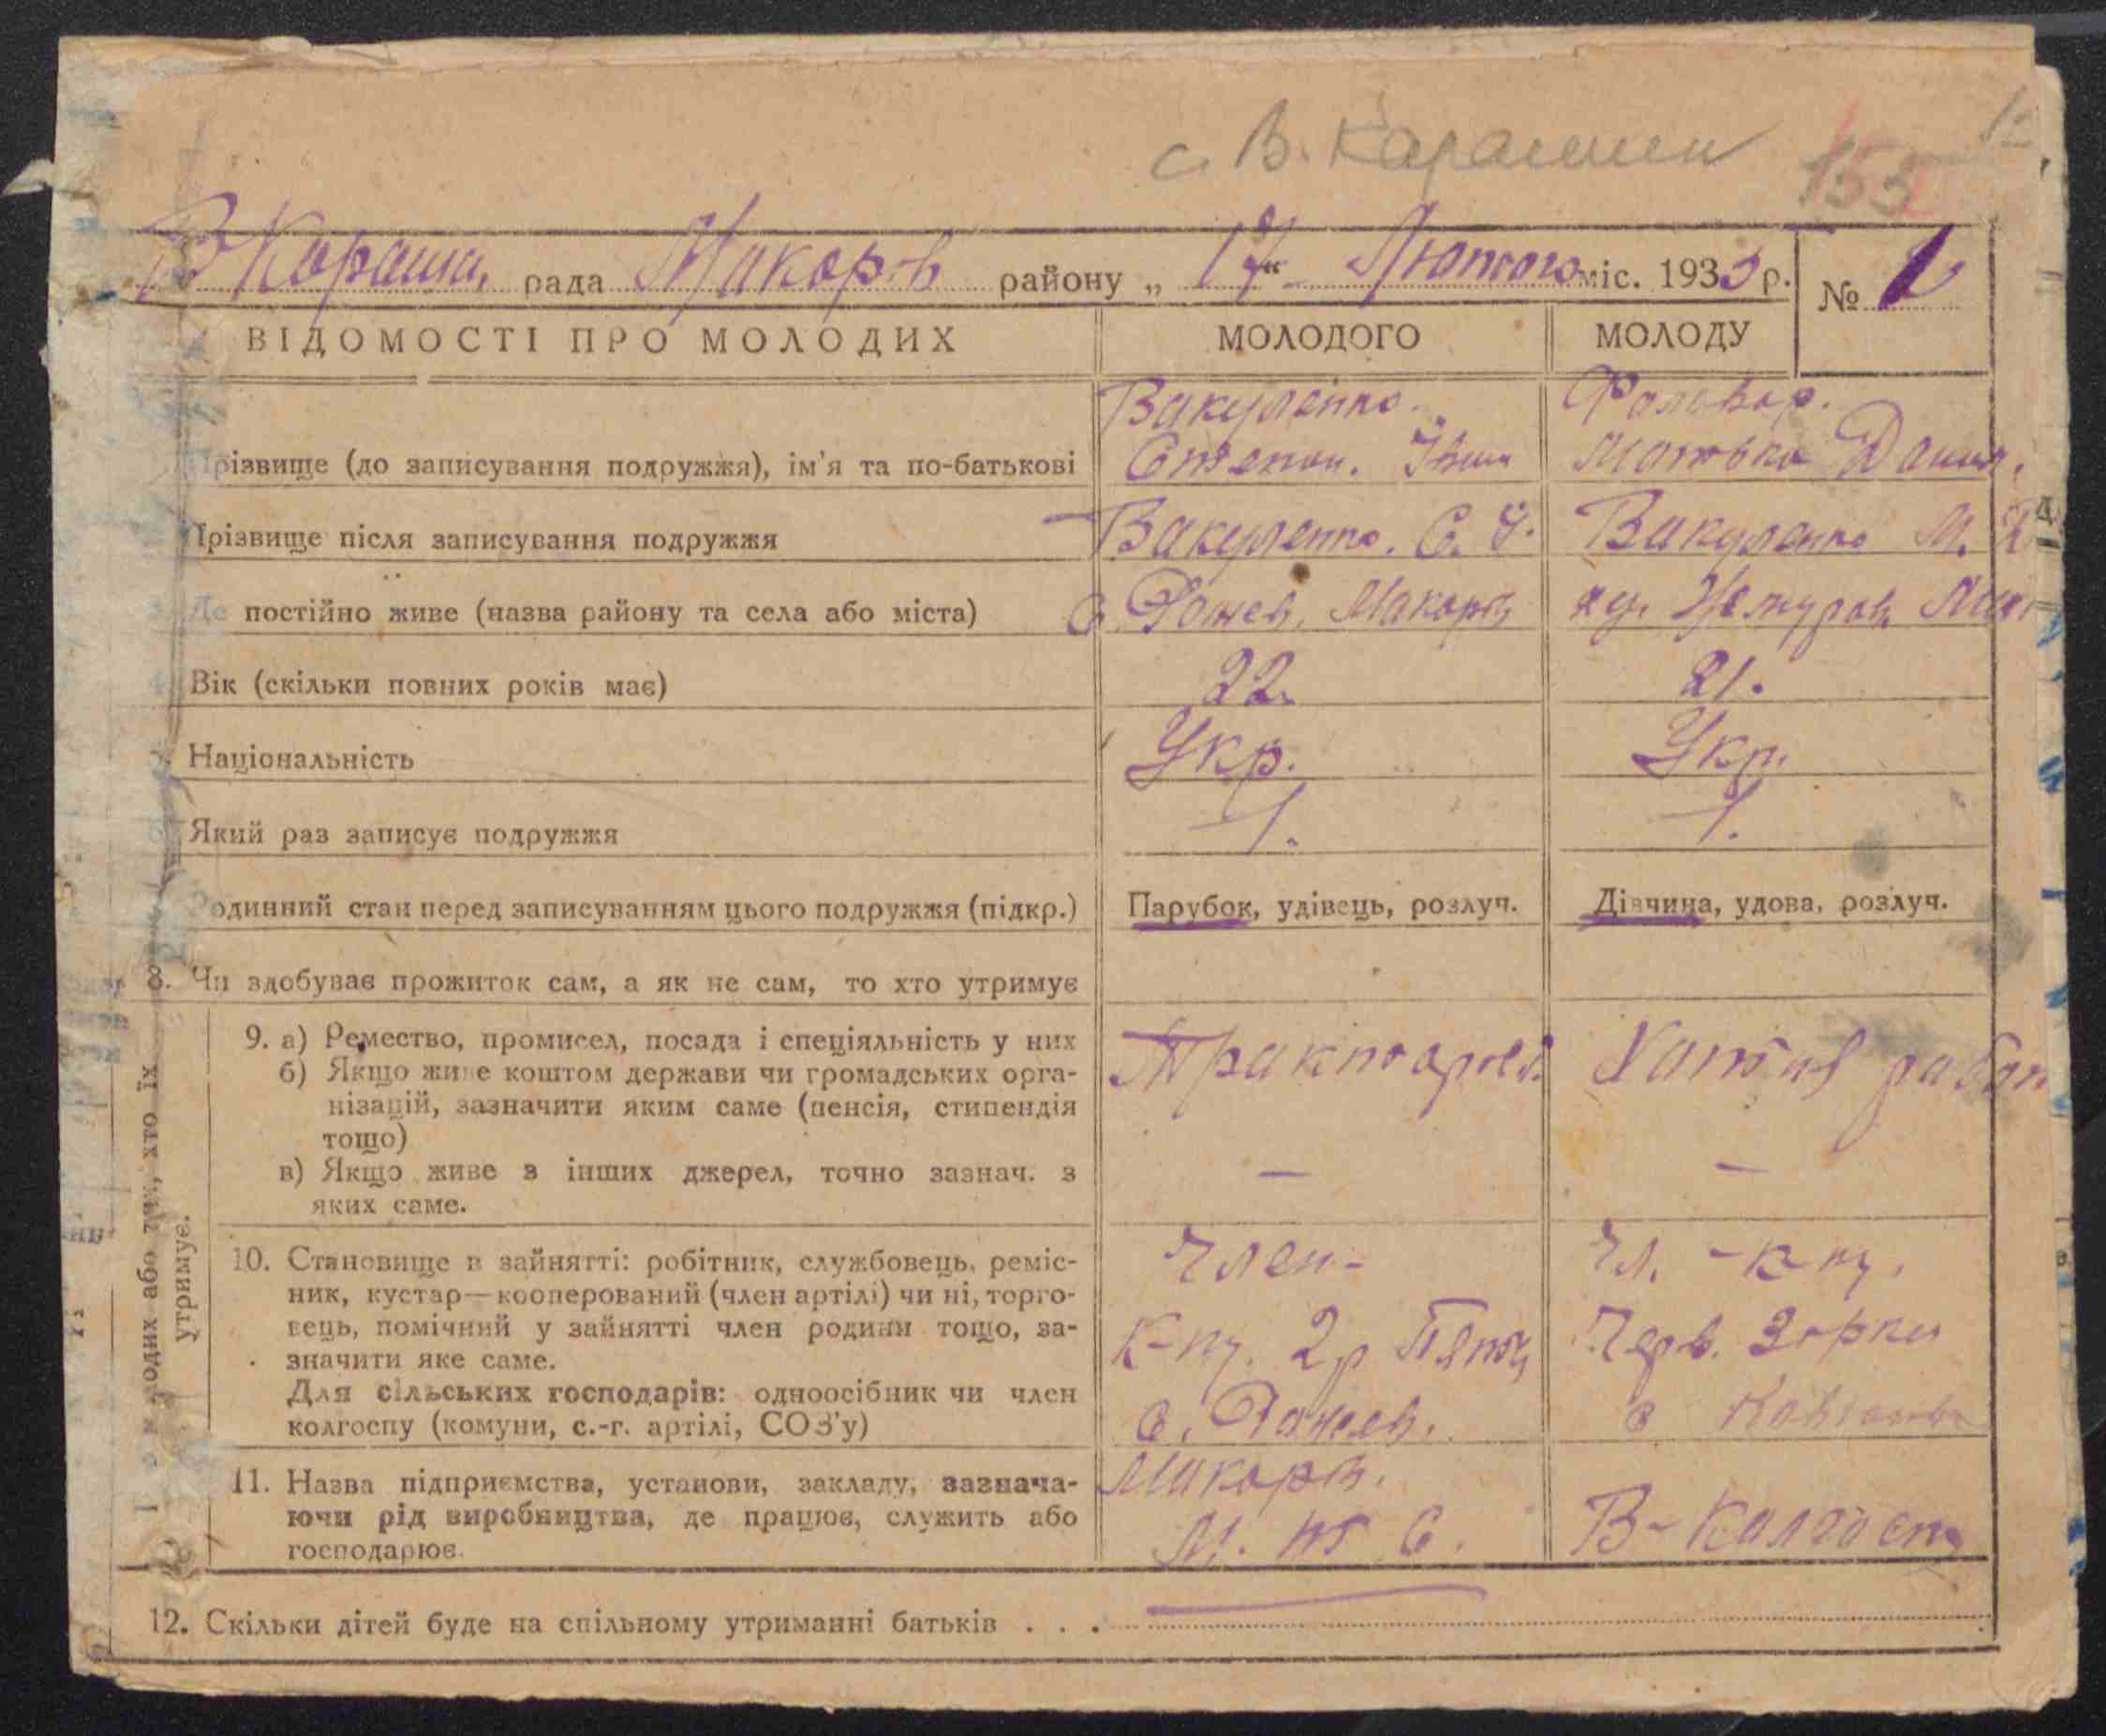 с. В. Карашин
153
В Кораша, рада Макорів району „17“ Лютого міс. 1933 р. № 1
ВІДОМОСТІ ПРО МОЛОДИХ МОЛОДОГО МОЛОДУ
різвище (до записування подружжя), ім'я та по-батькові Вакуленко. Степан. Іван Мотовка Данил.
Прізвище після записування подружжя Вакуленко. С. І. Вакуленко М. Д
Де постійно живе (назва району та села або міста) с. Рожев, Макорів ху.
Вік (скільки повних років має) 22. 21.
Національність Укр. Укр.
Який раз записує подружжя 1. 1.
одинний стан перед записуванням цього подружжя (підкр.) Парубок, удівець, розлуч. Дівчина, удова, розлуч.
8. Чи здобуває прожиток сам, а як не сам, то хто утримує
одих або тих, хто їх утримує.
9. а) Ремество, промисел, посада і спеціяльність у них Хатня работ
б) Якщо живе коштом держави чи громадських орга-
нізацій, зазначити яким саме (пенсія, стипендія
тощо)
в) Якщо живе з інших джерел, точно зазнач. з — —
яких саме.
10. Становище в зайнятті: робітник, службовець, реміс- Член- Чл. -К-пу.
ник, кустар—кооперований (член артілі) чи ні, торго-
вець, помічний у зайнятті член родини тощо, за- К-пу. 2р Пятш Черв. Зорки
значити яке саме.
Для сільських господарів: одноосібник чи член
колгоспу (комуни, с.-г. артілі, СОЗ'у) с. Рожев. с
11. Назва підприємства, установи, закладу, зазнача- Макорів.
ючи рід виробництва, де працює, служить або М. Т С. В- Колгосп
господарює.
12. Скільки дітей буде на спільному утриманні батьків . . .